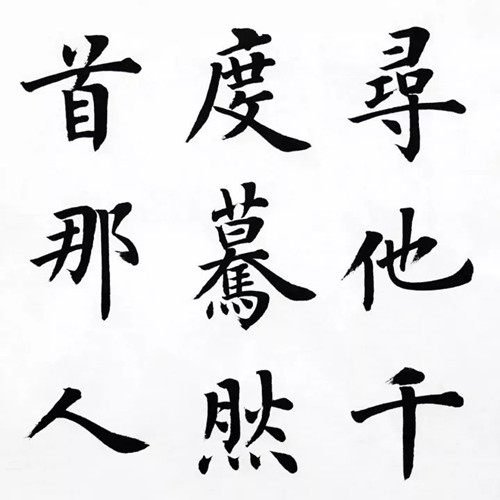 尋他千
度驀然
首那人